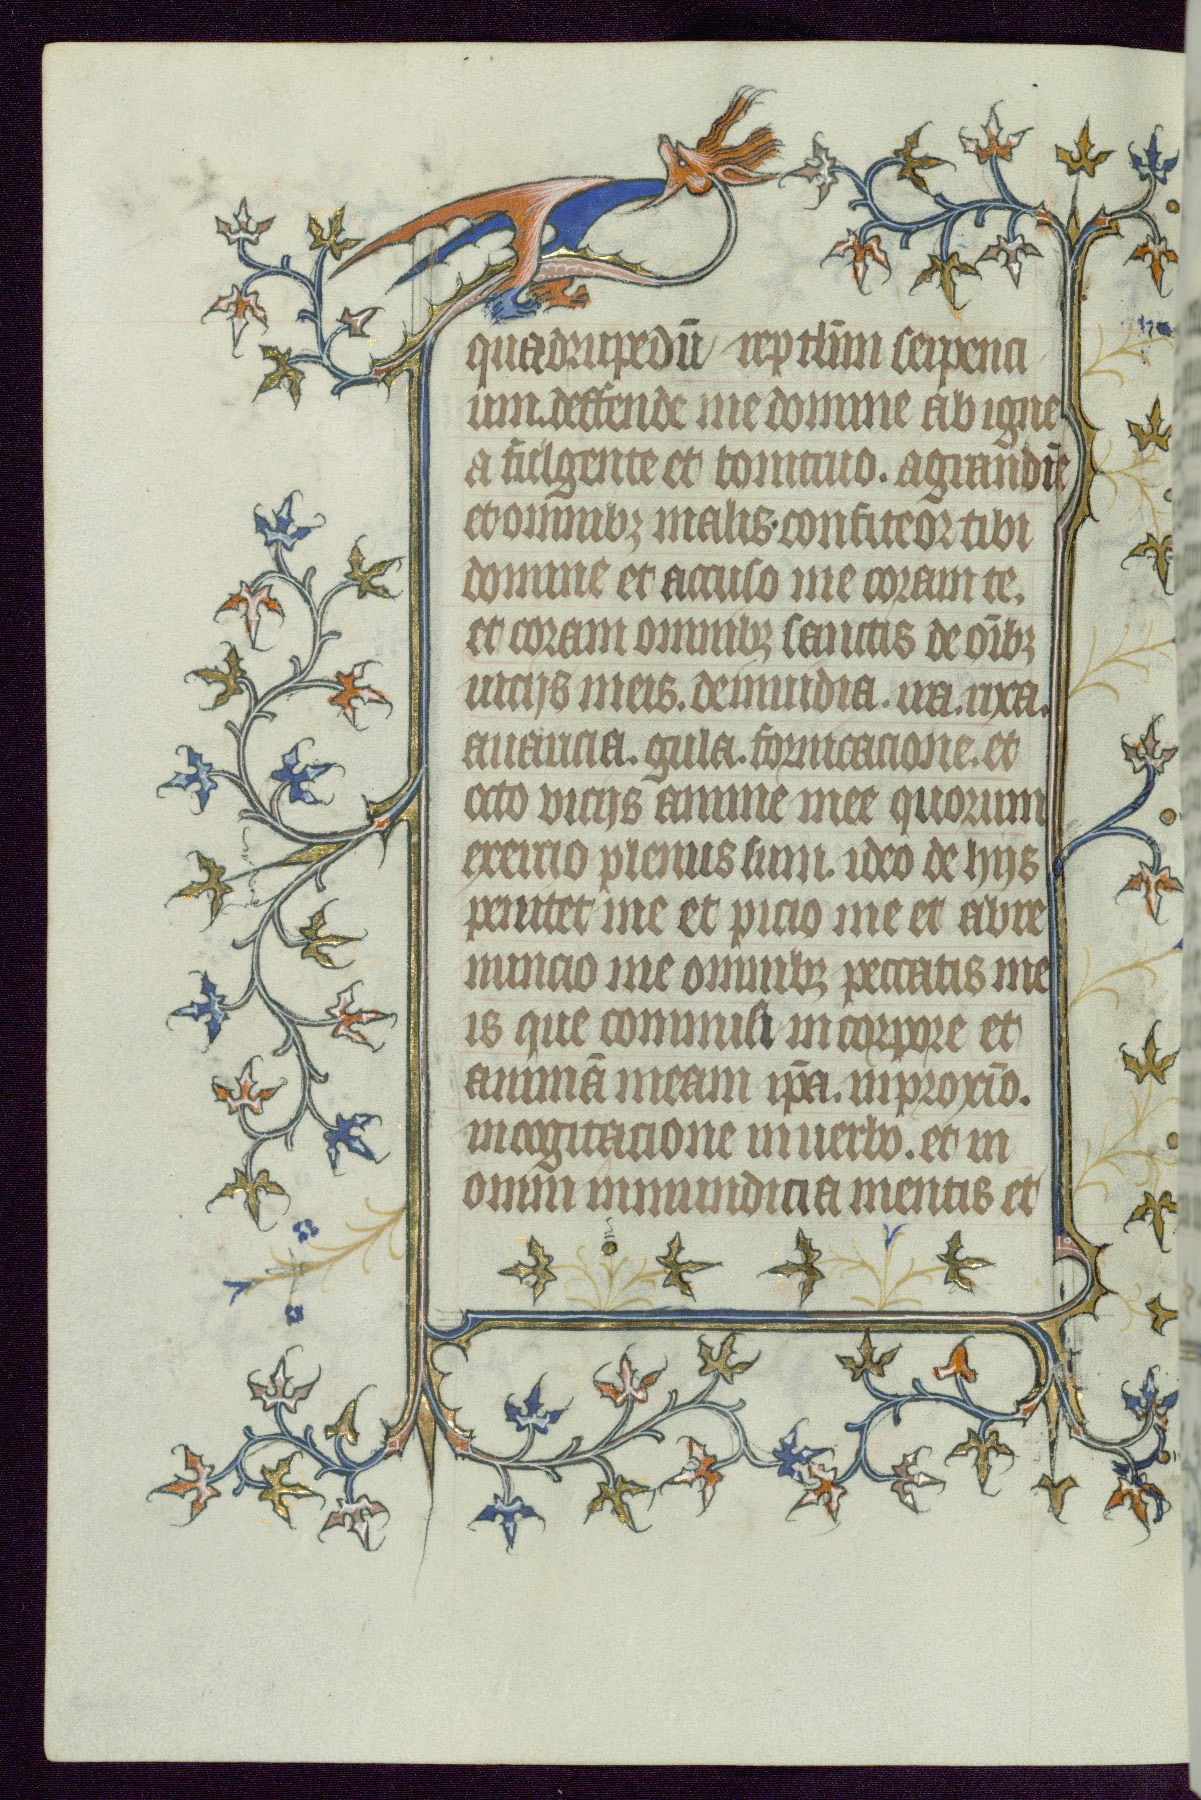 quadrupedū reptiliū serpenti
um. deffende me domine ab igne
a fulgente et tonitruo. a grandīe
et omnibꝫ malis. confiteor tibi
domine et accuso me coram te.
et coram omnibꝫ sanctis de oībꝫ
uicijs meis. de inuidia. ira. rixa.
auaricia. gula. fornicacione. et
octo vicijs anime mee quorum
exercicio plenus sum. ideo de hijs
penitet me et picio me et abre
nuncio me omnibꝫ peccatis me
is que commisi in corpore et
animā meam ip̄a. in proxīo.
in cogitacione in uerbo. et in
omni inmundicia mentis et